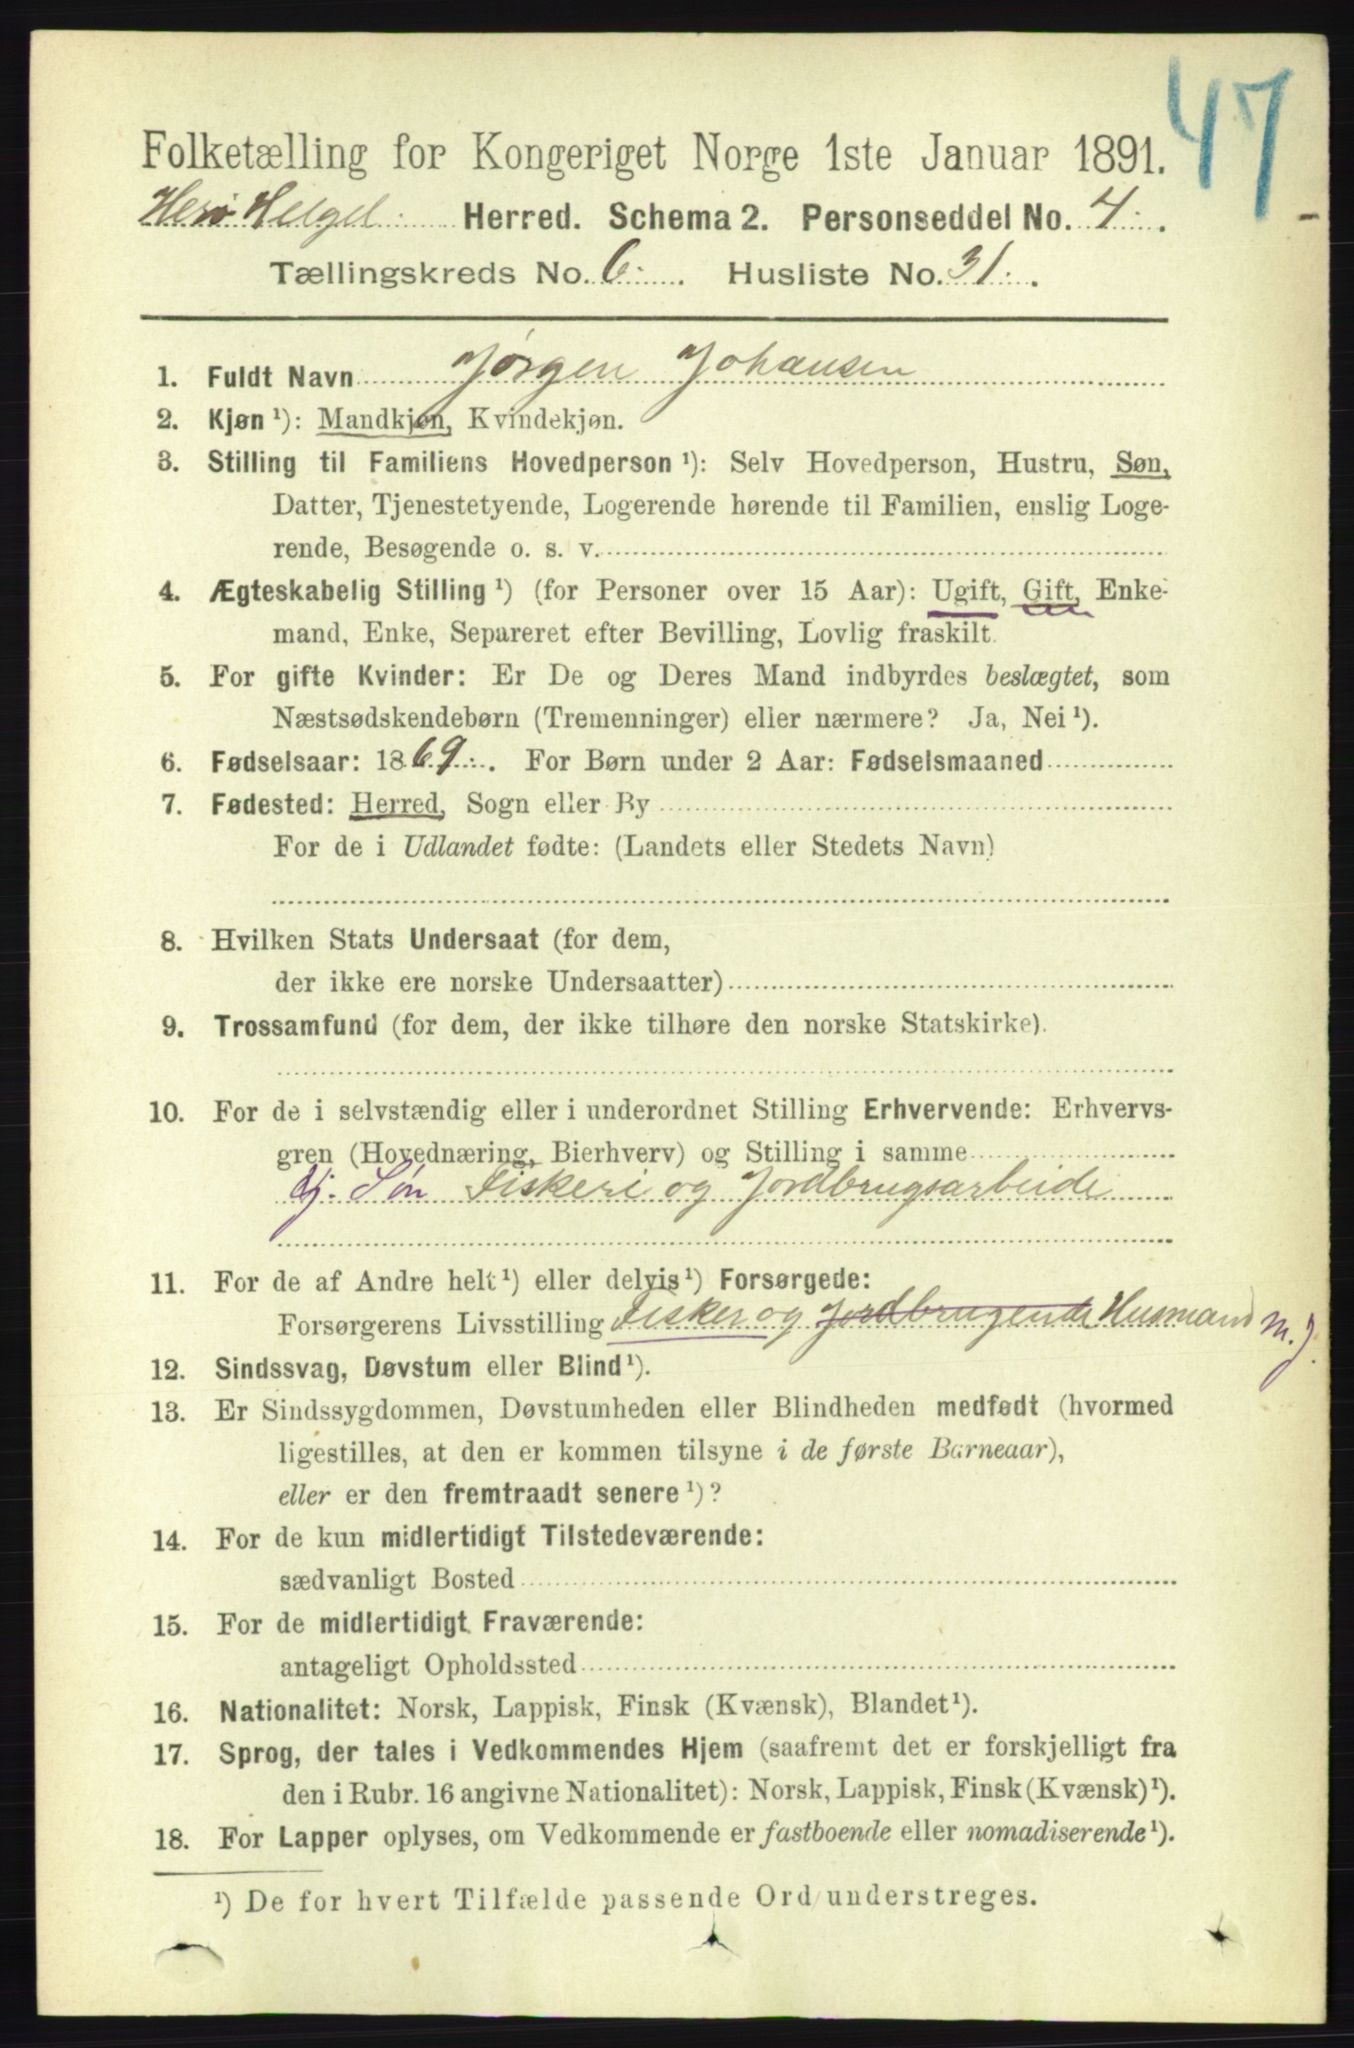 47
Folketælling for Kongeriget Norge 1ste Januar 1891.
Herø Helgel. Herred. Schema 2. Personseddel No. 4.
Tællingskreds No. 6. Husliste No. 31.
1. Fuldt Navn Jørgen Johansen
2. Kjøn ¹): Mandkjøn, Kvindekjøn.
3. Stilling til Familiens Hovedperson ¹): Selv Hovedperson, Hustru, Søn,
Datter, Tjenestetyende, Logerende hørende til Familien, enslig Loge-
rende, Besøgende o. s. v.
4. Ægteskabelig Stilling ¹) (for Personer over 15 Aar): Ugift, Gift, Enke-
mand, Enke, Separeret efter Bevilling, Lovlig fraskilt.
5. For gifte Kvinder: Er De og Deres Mand indbyrdes beslægtet, som
Næstsødskendebørn (Tremenninger) eller nærmere? Ja, Nei ¹).
6. Fødselsaar: 1869. For Børn under 2 Aar: Fødselsmaaned
7. Fødested: Herred, Sogn eller By
For de i Udlandet fødte: (Landets eller Stedets Navn)
8. Hvilken Stats Undersaat (for dem,
der ikke ere norske Undersaatter)
9. Trossamfund (for dem, der ikke tilhøre den norske Statskirke).
10. For de i selvstændig eller i underordnet Stilling Erhvervende: Erhvervs-
gren (Hovednæring, Bierhverv) og Stilling i samme
Hj. Søn Fiskeri og Jordbrugsarbeide
11. For de af Andre helt ¹) eller delvis ¹) Forsørgede:
Forsørgerens Livsstilling Fisker og Jordbrugende Husmand m. J.
12. Sindssvag, Døvstum eller Blind ¹).
13. Er Sindssygdommen, Døvstumheden eller Blindheden medfødt (hvormed
ligestilles, at den er kommen tilsyne i de første Barneaar),
eller er den fremtraadt senere ¹)?
14. For de kun midlertidigt Tilstedeværende:
sædvanligt Bosted
15. For de midlertidigt Fraværende:
antageligt Opholdssted
16. Nationalitet: Norsk, Lappisk, Finsk (Kvænsk), Blandet ¹).
17. Sprog, der tales i Vedkommendes Hjem (saafremt det er forskjelligt fra
den i Rubr. 16 angivne Nationalitet): Norsk, Lappisk, Finsk (Kvænsk) ¹).
18. For Lapper oplyses, om Vedkommende er fastboende eller nomadiserende ¹).
¹) De for hvert Tilfælde passende Ord understreges.